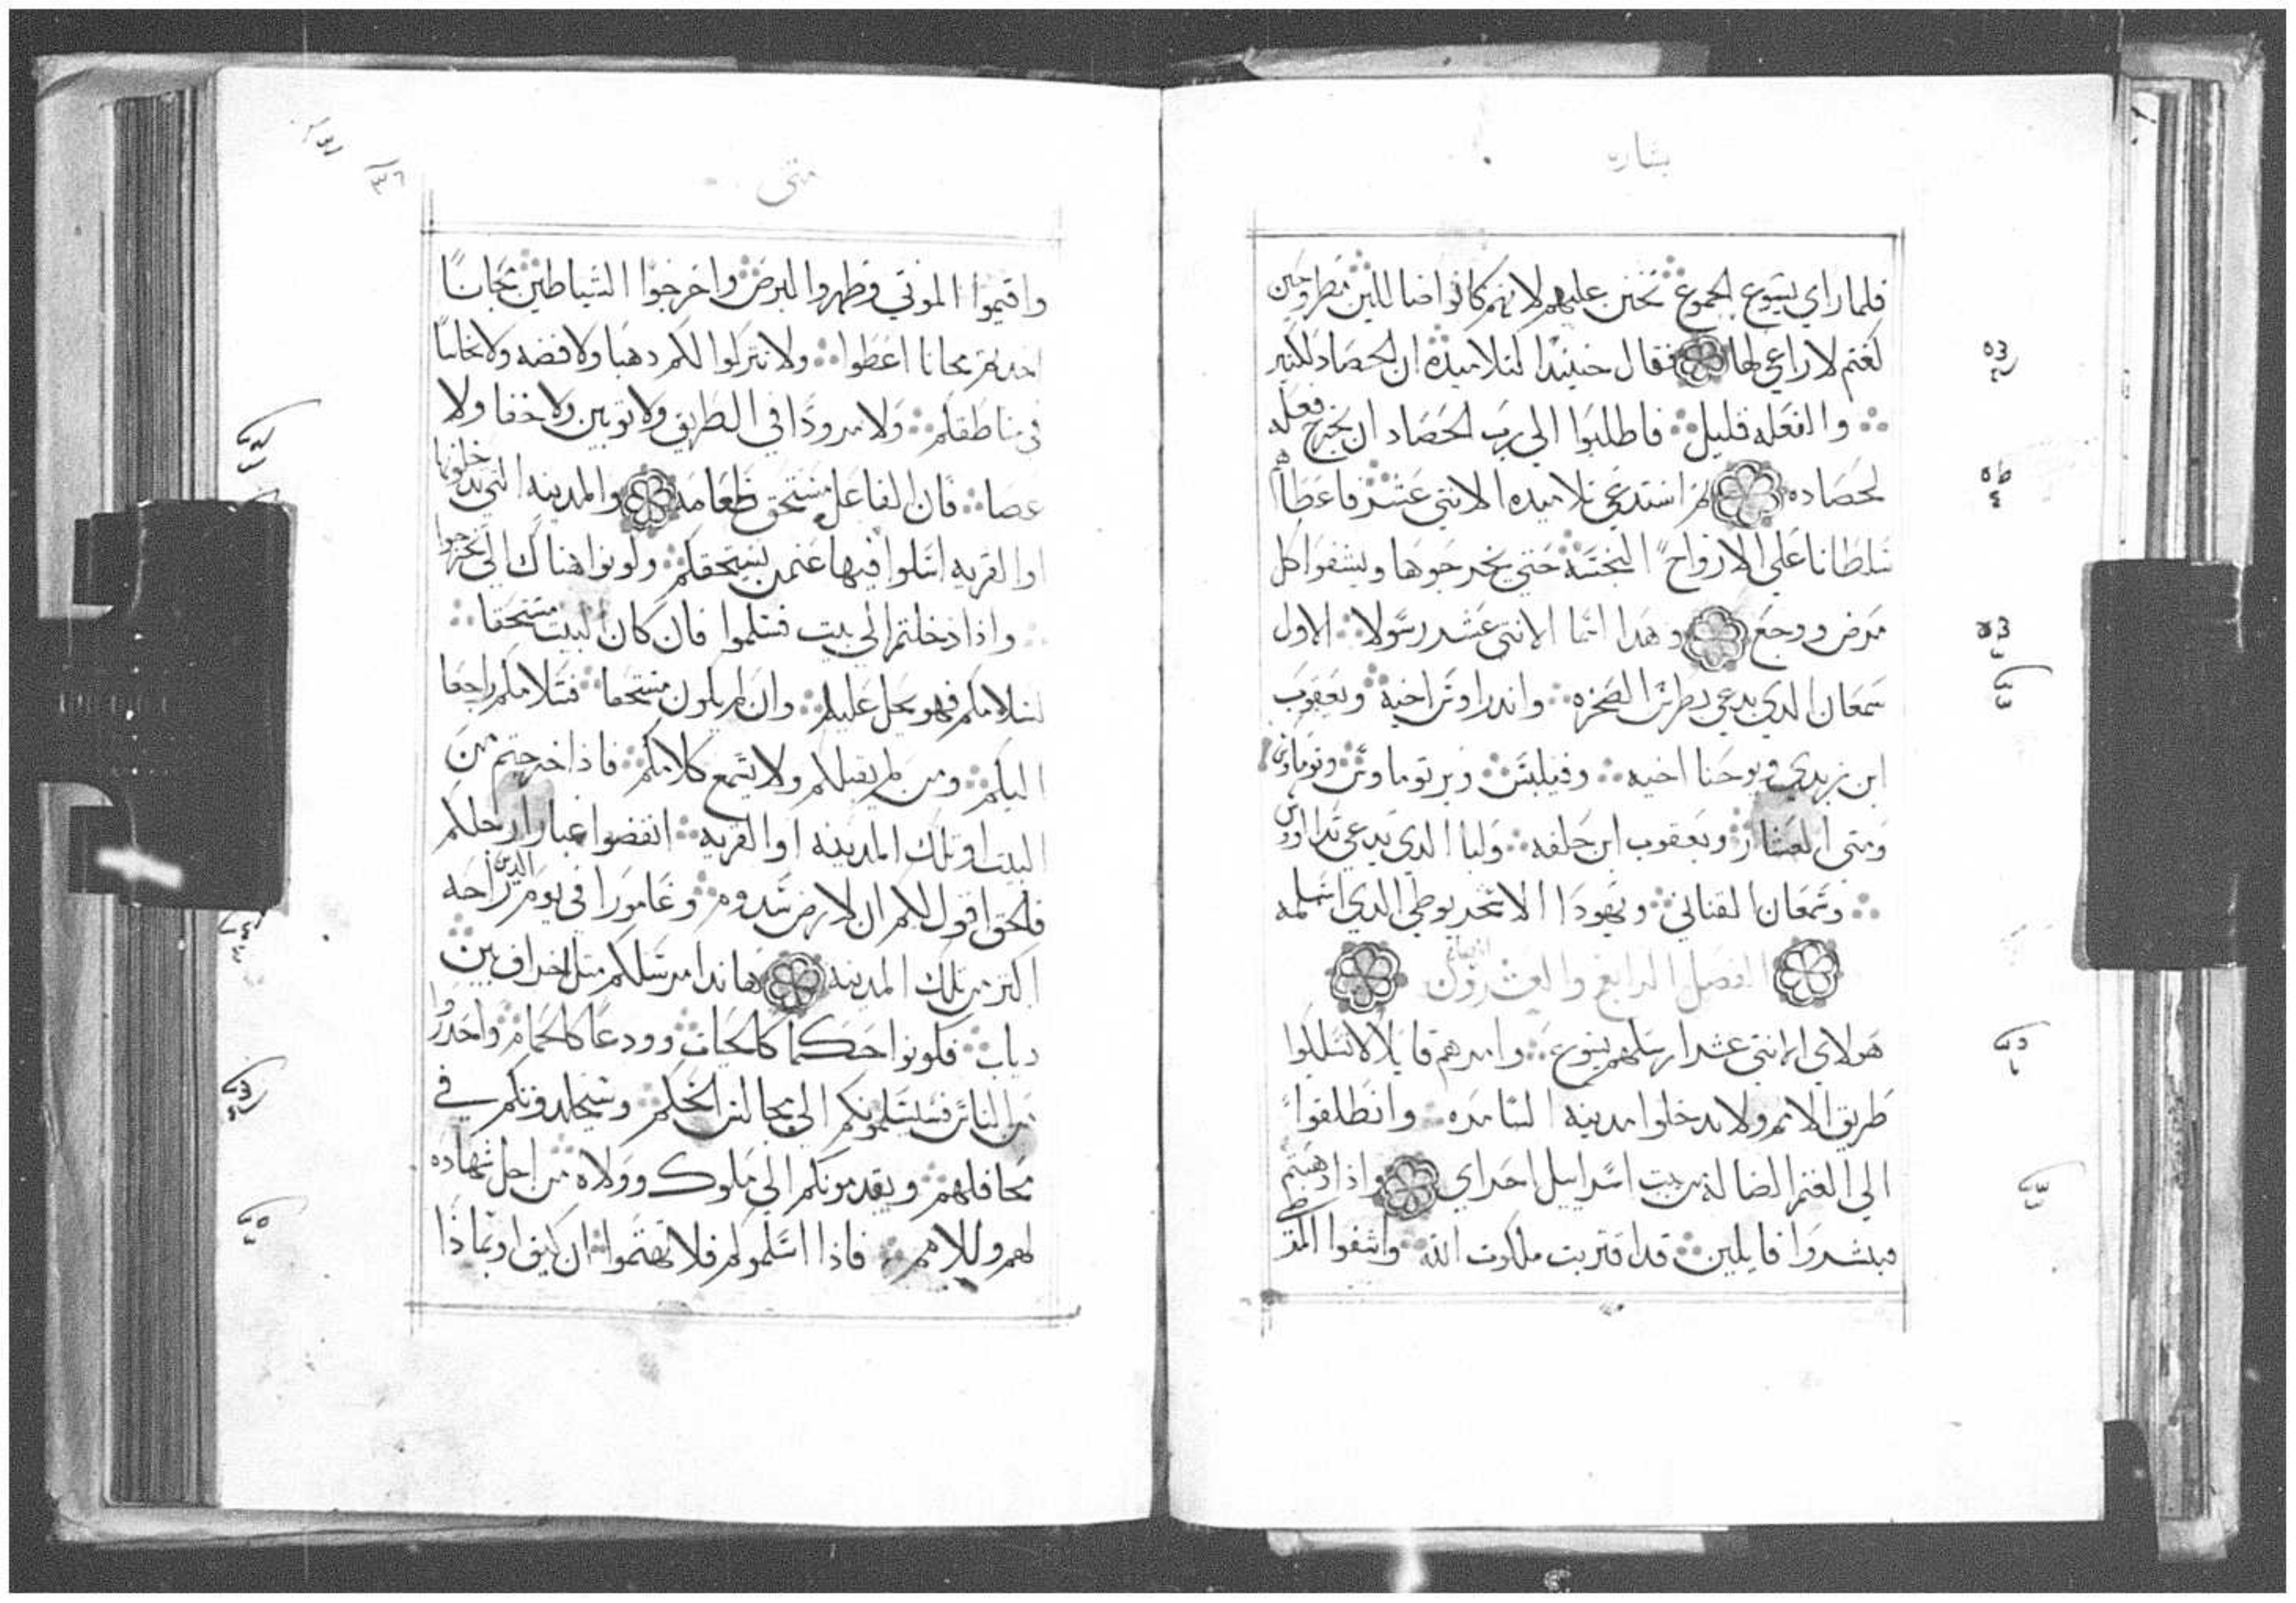 بشاره
فلما راي يسوع الجموع تحنن عليهم لانهم كانوا ضاللين مطروحين
كغنم لا راعي لها فقال حينيدا لتلاميده ان الحصاد لكثير
والفعله قليل فاطلبوا الي رب الحصاد ان يخرج فعله
لحصاده تم استدعي تلاميده الاتني عشر فاعطاهم
سلطانا علي الارواح النجسه حتي يخرجوها ويشفوا كل
مرض ووجع وهدا اسما الاتني عشر رسولا الاول
سمعان الدي يدعي بطرس الصخره واندراوس اخيه ويعقوب
ابن زبدي ويوحنا اخيه وفيلبس وبرتوماوس وتوماوس
ومتي العشار ويعقوب ابن حلفه ولبا الدي يدعي تداوس
وسمعان القناني ويهودا الاسخريوطي الدي اسلمه
الفصل الرابع والعشرون
هولاي الاتني عشر ارسلهم يسوع وامرهم قايلا لا تسلكوا
طريق الامم ولا تدخلوا مدينه السامره وانطلقوا
الي الغنم الضالة من بيت اسراييل احراي واذا دهبتم
فبشروا قايلين قد اقتربت ملكوت الله واشفوا المرضي
متى
واقيموا الموتي وطهروا البرص واخرجوا الشياطين مجانا
اخدتم مجانا اعطوا ولا تتركوا لكم دهبا ولا فضه ولا نحاسا
في مناطقكم ولا مرودا في الطريق ولا توبين ولا خفا ولا
عصا فان الفاعل مستحق طعامه والمدينه التي تدخلونها
او القريه اسلوا فيها عنمن يستحقكم وكونوا هناك الي تخرجوا
واذا دخلتم الي بيت فسلموا فان كان البيت مستحقا
لسلامكم فهو يحل عليكم وان لم يكون مستحقا فسلامكم راجعا
اليكم ومن لم يقبلكم ولا يسمع كلامكم فاذا خرجتم من
البيت او تلك المدينه او القريه انفضوا غبار ارجلكم
فالحق اقول لكم ان لارض سدوم وغامورا في يوم الدين راحه
اكتر من تلك المدينه هاندا مرسلكم متل الخراف بين
دياب فكونوا حكما كالحيات وودعا كالحمام واحدروا
من الناس فسيسلمونكم الي مجالس الحكم وسيجلدونكم في
محافلهم ويقدمونكم الي ملوك وولاه من اجل شهاده
لهم وللامم فاذا اسلموكم فلا تهتموا ان كيف او بماذا